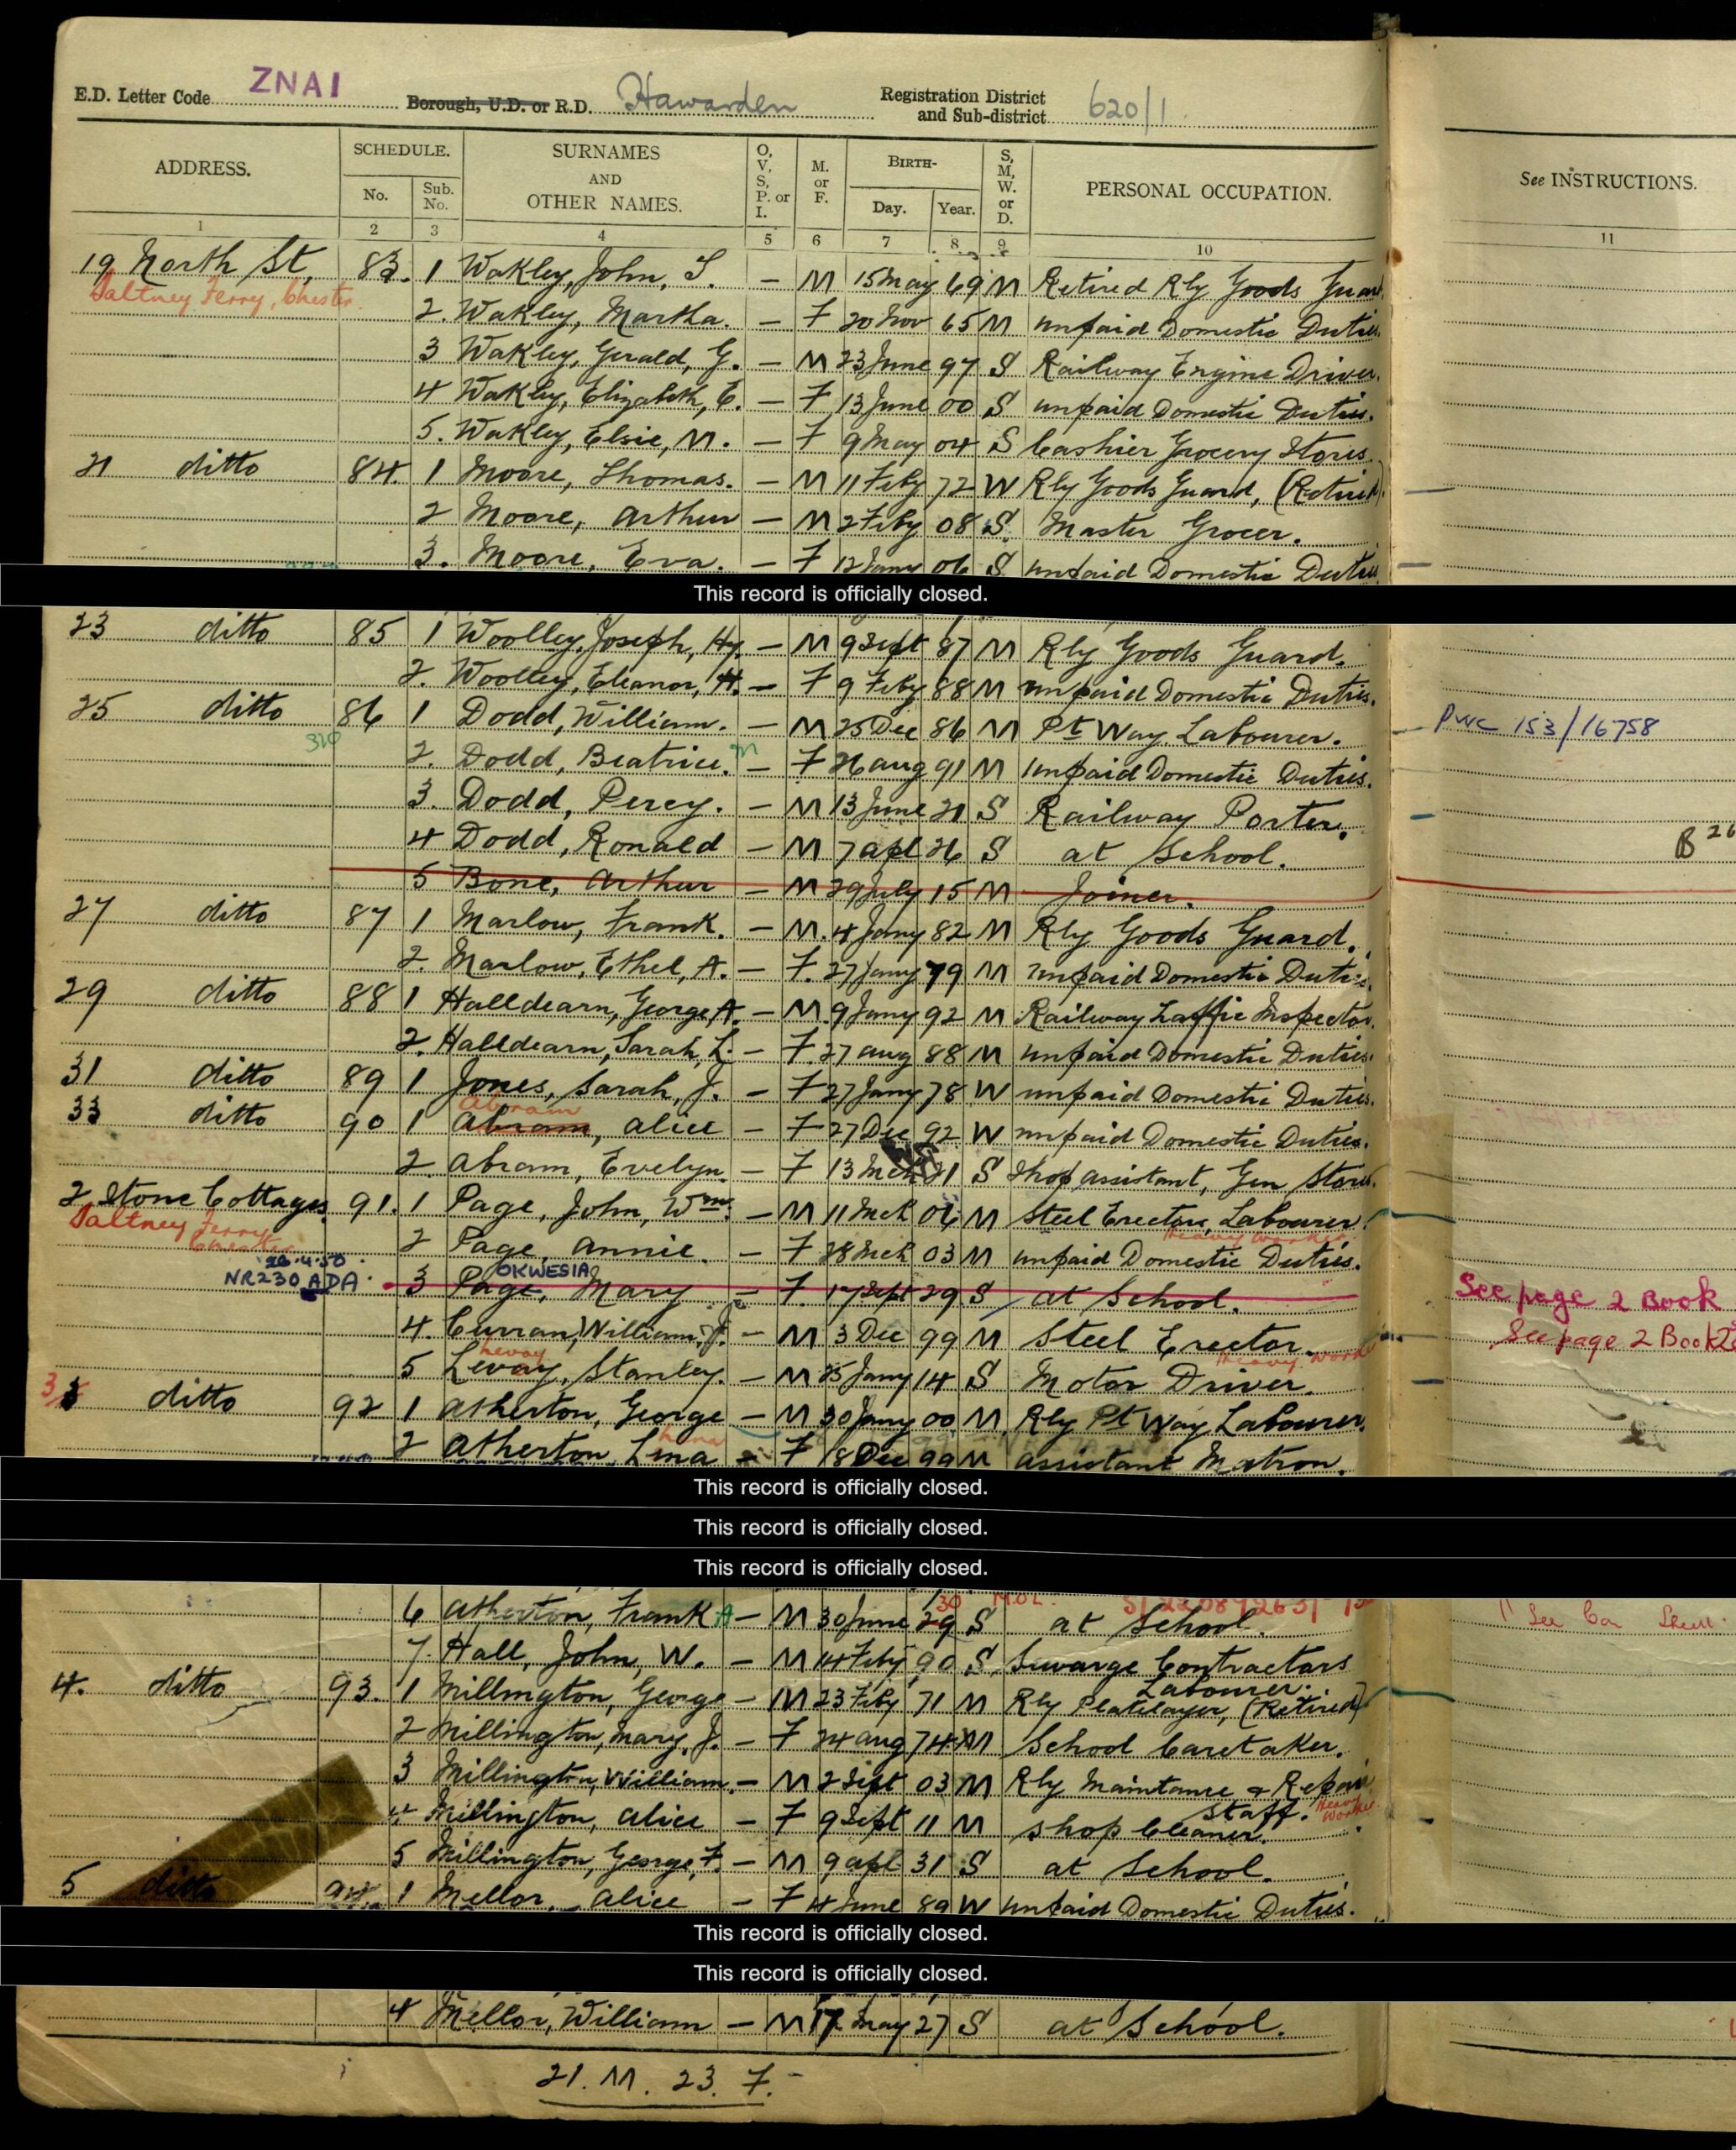 E.D. Letter Code ZNAI Borough, U.D. or R.D. Hawarden Registration District and Sub-district 620/1
ADDRESS. SCHEDULE. No. Sub. No. SURNAMES AND OTHER NAMES. O, V, S, P. or I. M. or F. BIRTH- Day. Year. S, M, W. or D. PERSONAL OCCUPATION. See INSTRUCTIONS.
1 2 3 4 5 6 7 8 9 10 11
19 North St, 83. 1 Wakley, John, T. — M 15 May 69 M Retired Rly Goods Guard
Saltney Ferry, Chester.
2. Wakley, Martha. — F 20 Nov 65 M unpaid Domestic Duties
3 Wakley, Gerald, G. — M 23 June 97 S Railway Engine Driver.
4 Wakley, Elizabeth, E. — F 13 June 00 S unpaid Domestic Duties.
5. Wakley, Elsie, M. — F 9 May 04 S Cashier Grocery Stores.
21 ditto 84. 1 Moore, Thomas. — M 11 Feby 72 W Rly Goods Guard, (Retired).
2 Moore, Arthur — M 2 Feby 08 S. Master Grocer.
3. Moore, Eva. — F 12 Jany 06 S unpaid Domestic Duties
This record is officially closed.
23 ditto 85 1 Woolley, Joseph, Hy. — M 9 Sept 87 M Rly Goods Guard.
2. Woolley, Eleanor, H. — F 9 Feby 88 M unpaid Domestic Duties.
25 ditto 86 1 Dodd, William. — M 25 Dec 86 M Pt Way Labourer. PWC 153/16758
2. Dodd, Beatrice. M — F 26 Aug 91 M unpaid Domestic Duties.
3. Dodd, Percy. — M 13 June 21 S Railway Porter.
4 Dodd, Ronald — M 7 Apl 26 S at School. B 26
5 Bone, Arthur — M 29 July 15 M Joiner.
27 ditto 87 1 Marlow, Frank. — M. 4 Jany 82 M Rly Goods Guard.
2. Marlow, Ethel, A. — F. 27 Jany 79 M unpaid Domestic Duties.
29 ditto 88 1 Halldearn, George A. — M. 9 Jany 92 M Railway Traffic Inspector.
2. Halldearn, Sarah, L. — F. 27 Aug 88 M unpaid Domestic Duties.
31 ditto 89 1 Jones, Sarah, J. — F 27 Jany 78 W unpaid Domestic Duties.
Abram
33 ditto 90 1 Abram, Alice — F 27 Dec 92 W unpaid Domestic Duties.
2 Abram, Evelyn. — F 13 Mch 21 S Shop Assistant, Gen Stores.
2 Stone Cottages. 91. 1 Page, John, Wm. — M 11 Mch 06 M Steel Erectors Labourer.
Saltney Ferry Chester Heavy Worker
2 Page, Annie — F 28 Mch 03 M unpaid Domestic Duties.
26.4.50 OKWESIA
NR230 ADA. 3 Page, Mary — F. 17 Sept 29 S at School. See page 2 Book
4. Curran, William, J. — M 3 Dec 99 M Steel Erector. See page 2 Book 2
Levoy Heavy Worker
5 Levay, Stanley. — M 25 Jany 14 S Motor Driver.
3 ditto 92 1 Atherton, George — M 30 Jany 00 M. Rly Pt Way Labourer.
2 Atherton, Lina — F 18 Dec 99 M assistant Matron.
This record is officially closed.
This record is officially closed.
This record is officially closed.
6 Atherton, Frank A — M 30 June 29 S at School.
30 M.O.L. See Con Sheet
7. Hall, John, W. — M 14 Feby 90 S. Sewarge Contractors Labourer.
4. ditto 93. 1 Millington, George — M 23 Feby 71 M Rly Platelayer, (Retired)
2 Millington, Mary, J. — F 24 Aug 74 M School Caretaker.
3 Millington, William. — M 2 Sept 03 M Rly Maintance & Repair Staff. Heavy Worker
4 Millington, Alice — F 9 Sept 11 M Shop Cleaner.
5 Millington, George, F. — M 9 Apl 31 S at School.
5 ditto 94 1 Mellor, Alice — F 4 June 89 W unpaid Domestic Duties.
This record is officially closed.
This record is officially closed.
4 Mellor, William — M 17 May 27 S at School.
21. M. 23. F.